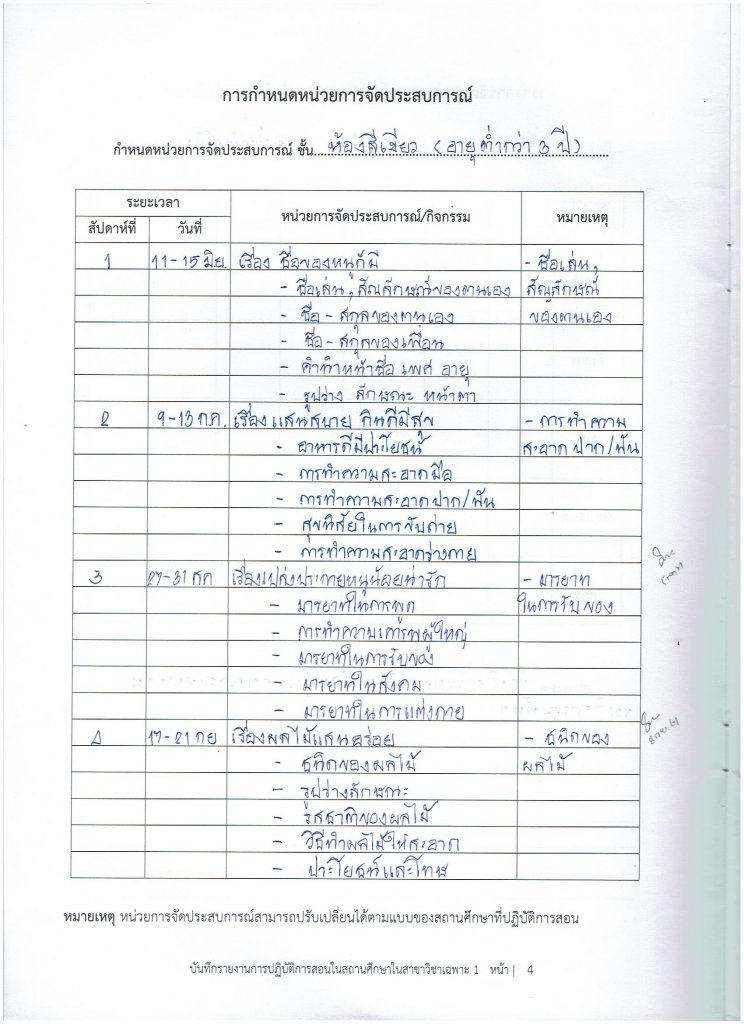 การกำหนดหน่วยการจัดประสบการณ์
กำหนดหน่วยการจัดประสบการณ์ ชั้น...ห้องสีเขียว (อายุต่ำกว่า 3 ปี)
ระยะเวลา หน่วยการจัดประสบการณ์/กิจกรรม หมายเหตุ
สัปดาห์ที่ วันที่
1 11-15 มิย. เรื่อง ชื่อของหนูก็มี - ชื่อเล่น,
- ชื่อเล่น, สัญลักษณ์ของตนเอง สัญลักษณ์
- ชื่อ - สกุลของตนเอง ของตนเอง
- ชื่อ - สกุลของเพื่อน
- คำนำหน้าชื่อ เพศ อายุ
- รูปร่าง ลักษณะ หน้าตา
2 9-13 ก.ค. เรื่องแสนสบาย กินดีมีสุข - การทำความ
- อาหารดีมีประโยชน์ สะอาด ปาก/ฟัน
- การทำความสะอาดมือ
- การทำความสะอาดปาก/ฟัน
- สุขนิสัยในการขับถ่าย
- การทำความสะอาดร่างกาย
3 27-31 สค เรื่องเปล่งประกายหนูน้อยน่ารัก - มารยาท
- มารยาทในการพูด ในการรับของ
- การทำความเคารพผู้ใหญ่
- มารยาทในการรับของ
- มารยาทในสังคม
- มารยาทในการแต่งกาย
4 17-21 กย เรื่องผลไม้แสนอร่อย - ชนิดของ
- ชนิดของผลไม้ ผลไม้
- รูปร่างลักษณะ
- รสชาติของผลไม้
- วิธีทำผลไม้ให้สะอาด
- ประโยชน์และโทษ
หมายเหตุ หน่วยการจัดประสบการณ์สามารถปรับเปลี่ยนได้ตามแบบของสถานศึกษาที่ปฏิบัติการสอน
บันทึกรายงานการปฏิบัติการสอนในสถานศึกษาในสาขาวิชาเฉพาะ 1 หน้า | 4